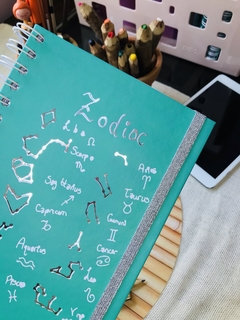 Zodiac
Libra ♎
Scorpio ♏
Aries ♈
Sagittarius ♐
Taurus ♉
Capricorn
Gemini ♊
Aquarius ♒
Cancer ♋
Leo ♌
Pisces ♓